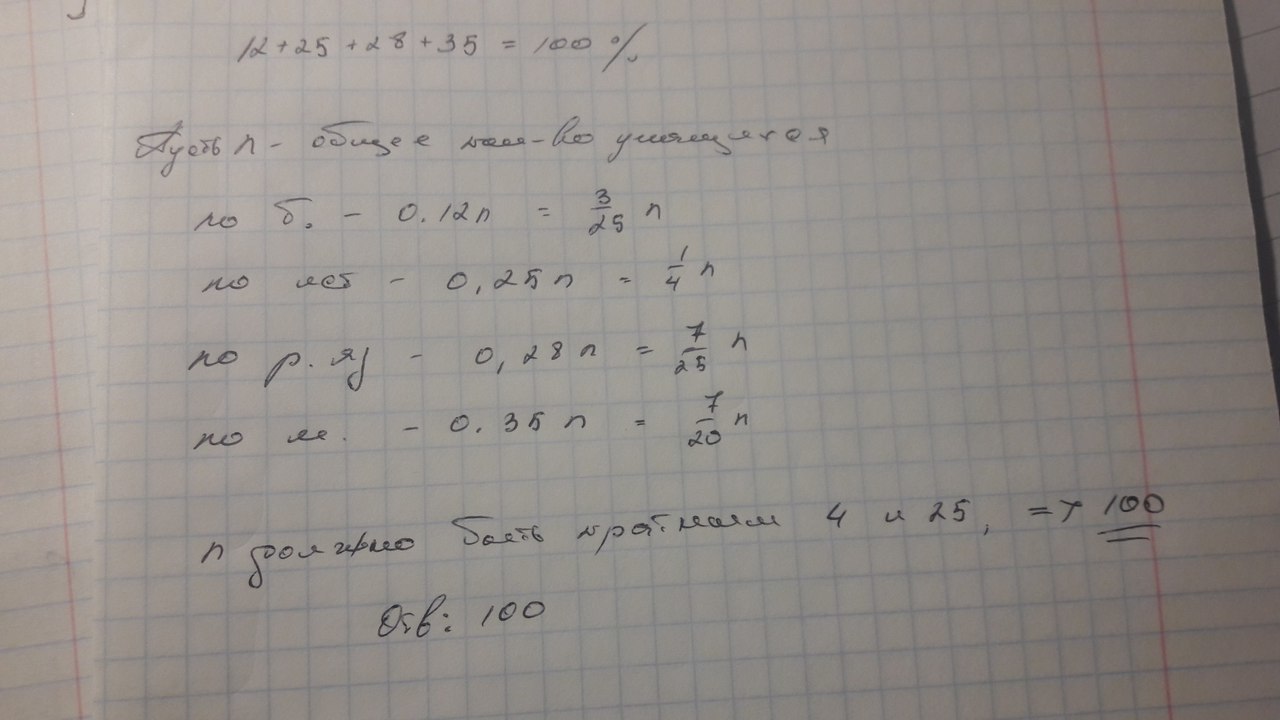 12 + 25 + 28 + 35 = 100 %
Пусть n - общее кол-во учащихся
по б. - 0.12n = 3/25 n
по ист - 0,25n = 1/4 n
по р. яз - 0,28n = 7/25 n
по м. - 0.35n = 7/20 n
n должно быть кратным 4 и 25, => 100
Отв: 100